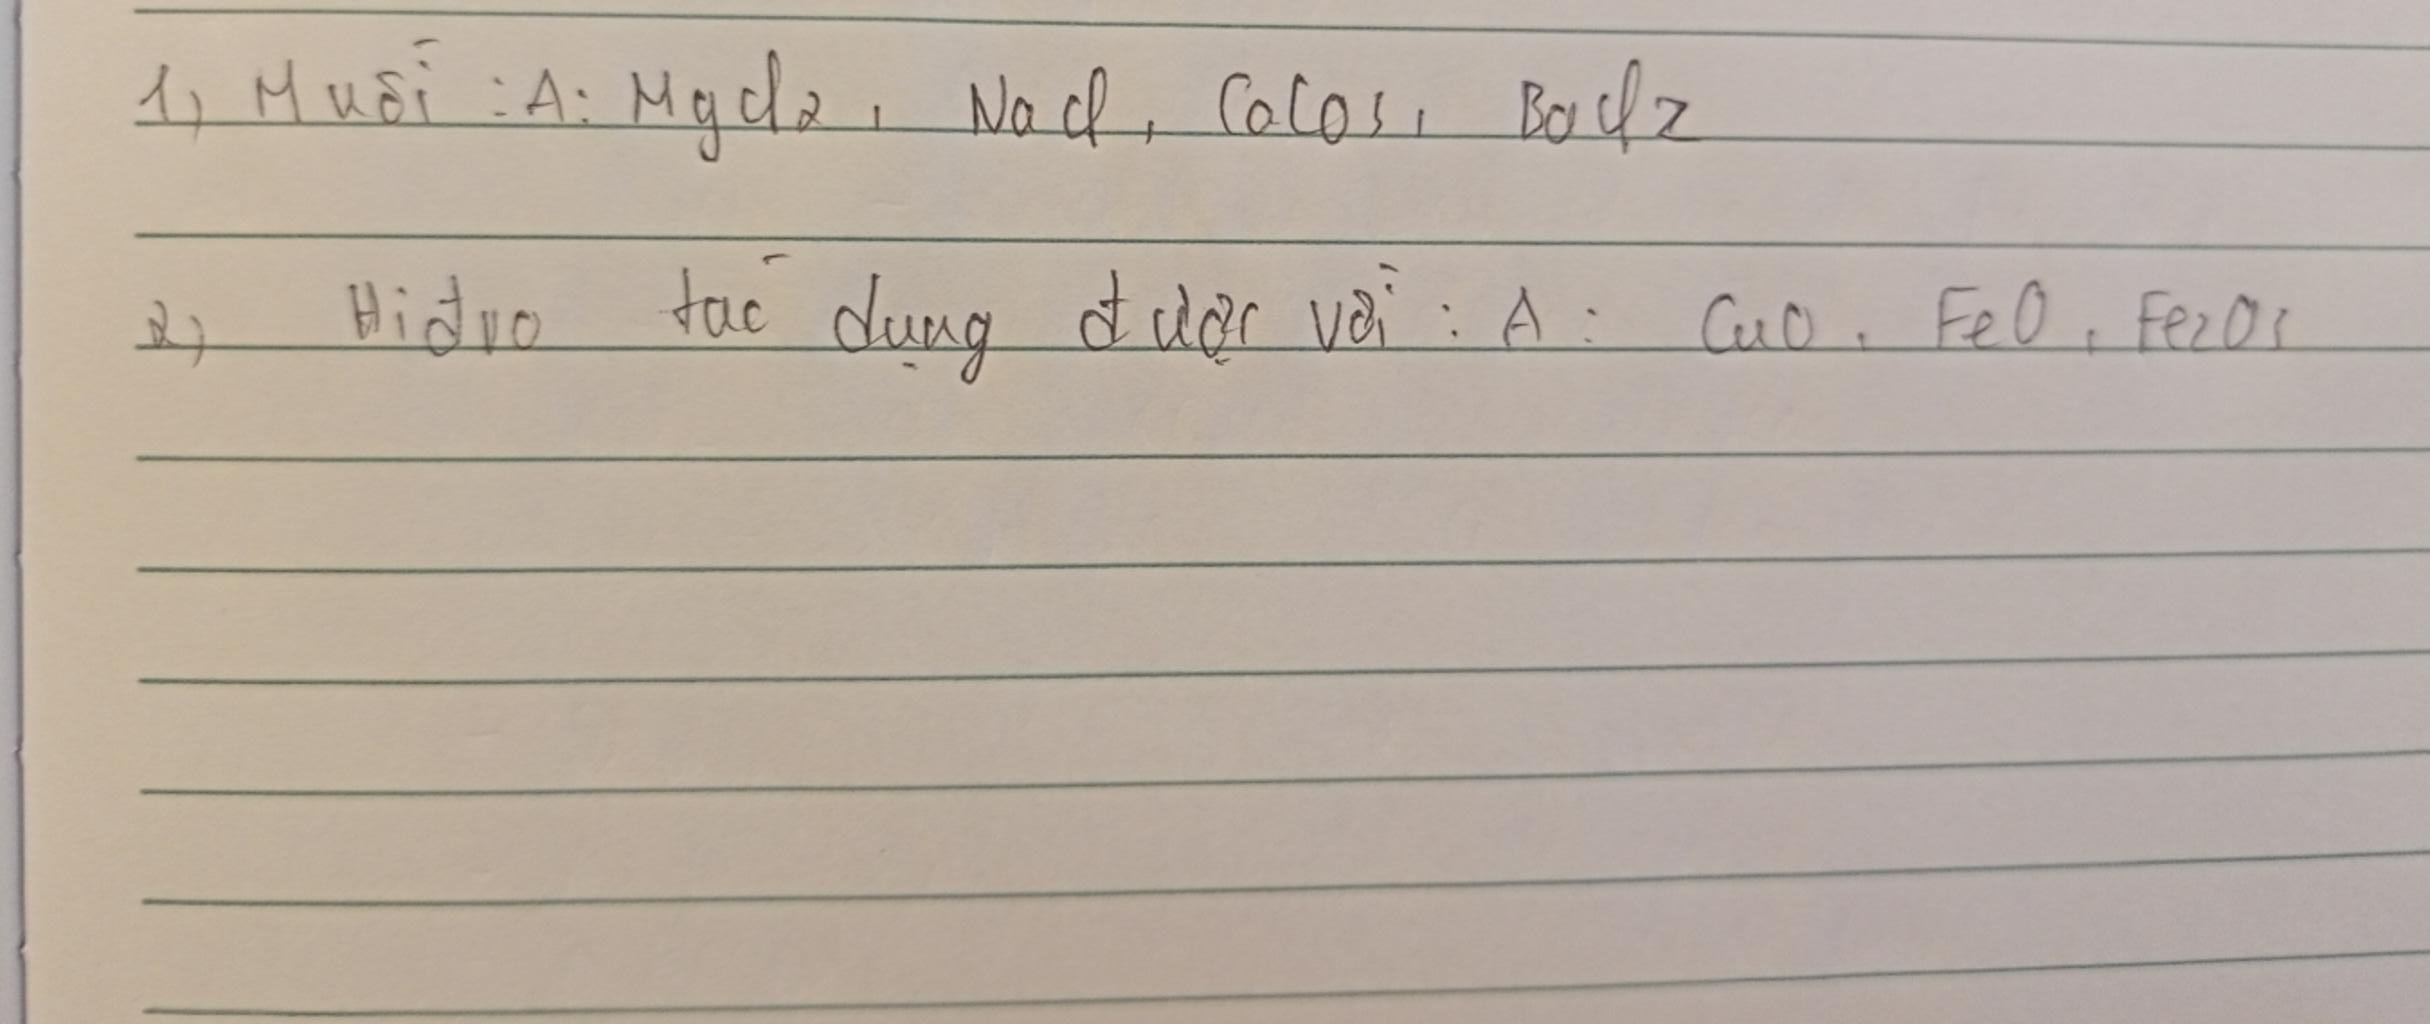 1, Muối : A: MgCl2, NaCl, CaCO3, BaCl2
2, Hiđro tác dụng được với : A: CuO, FeO, Fe2O3